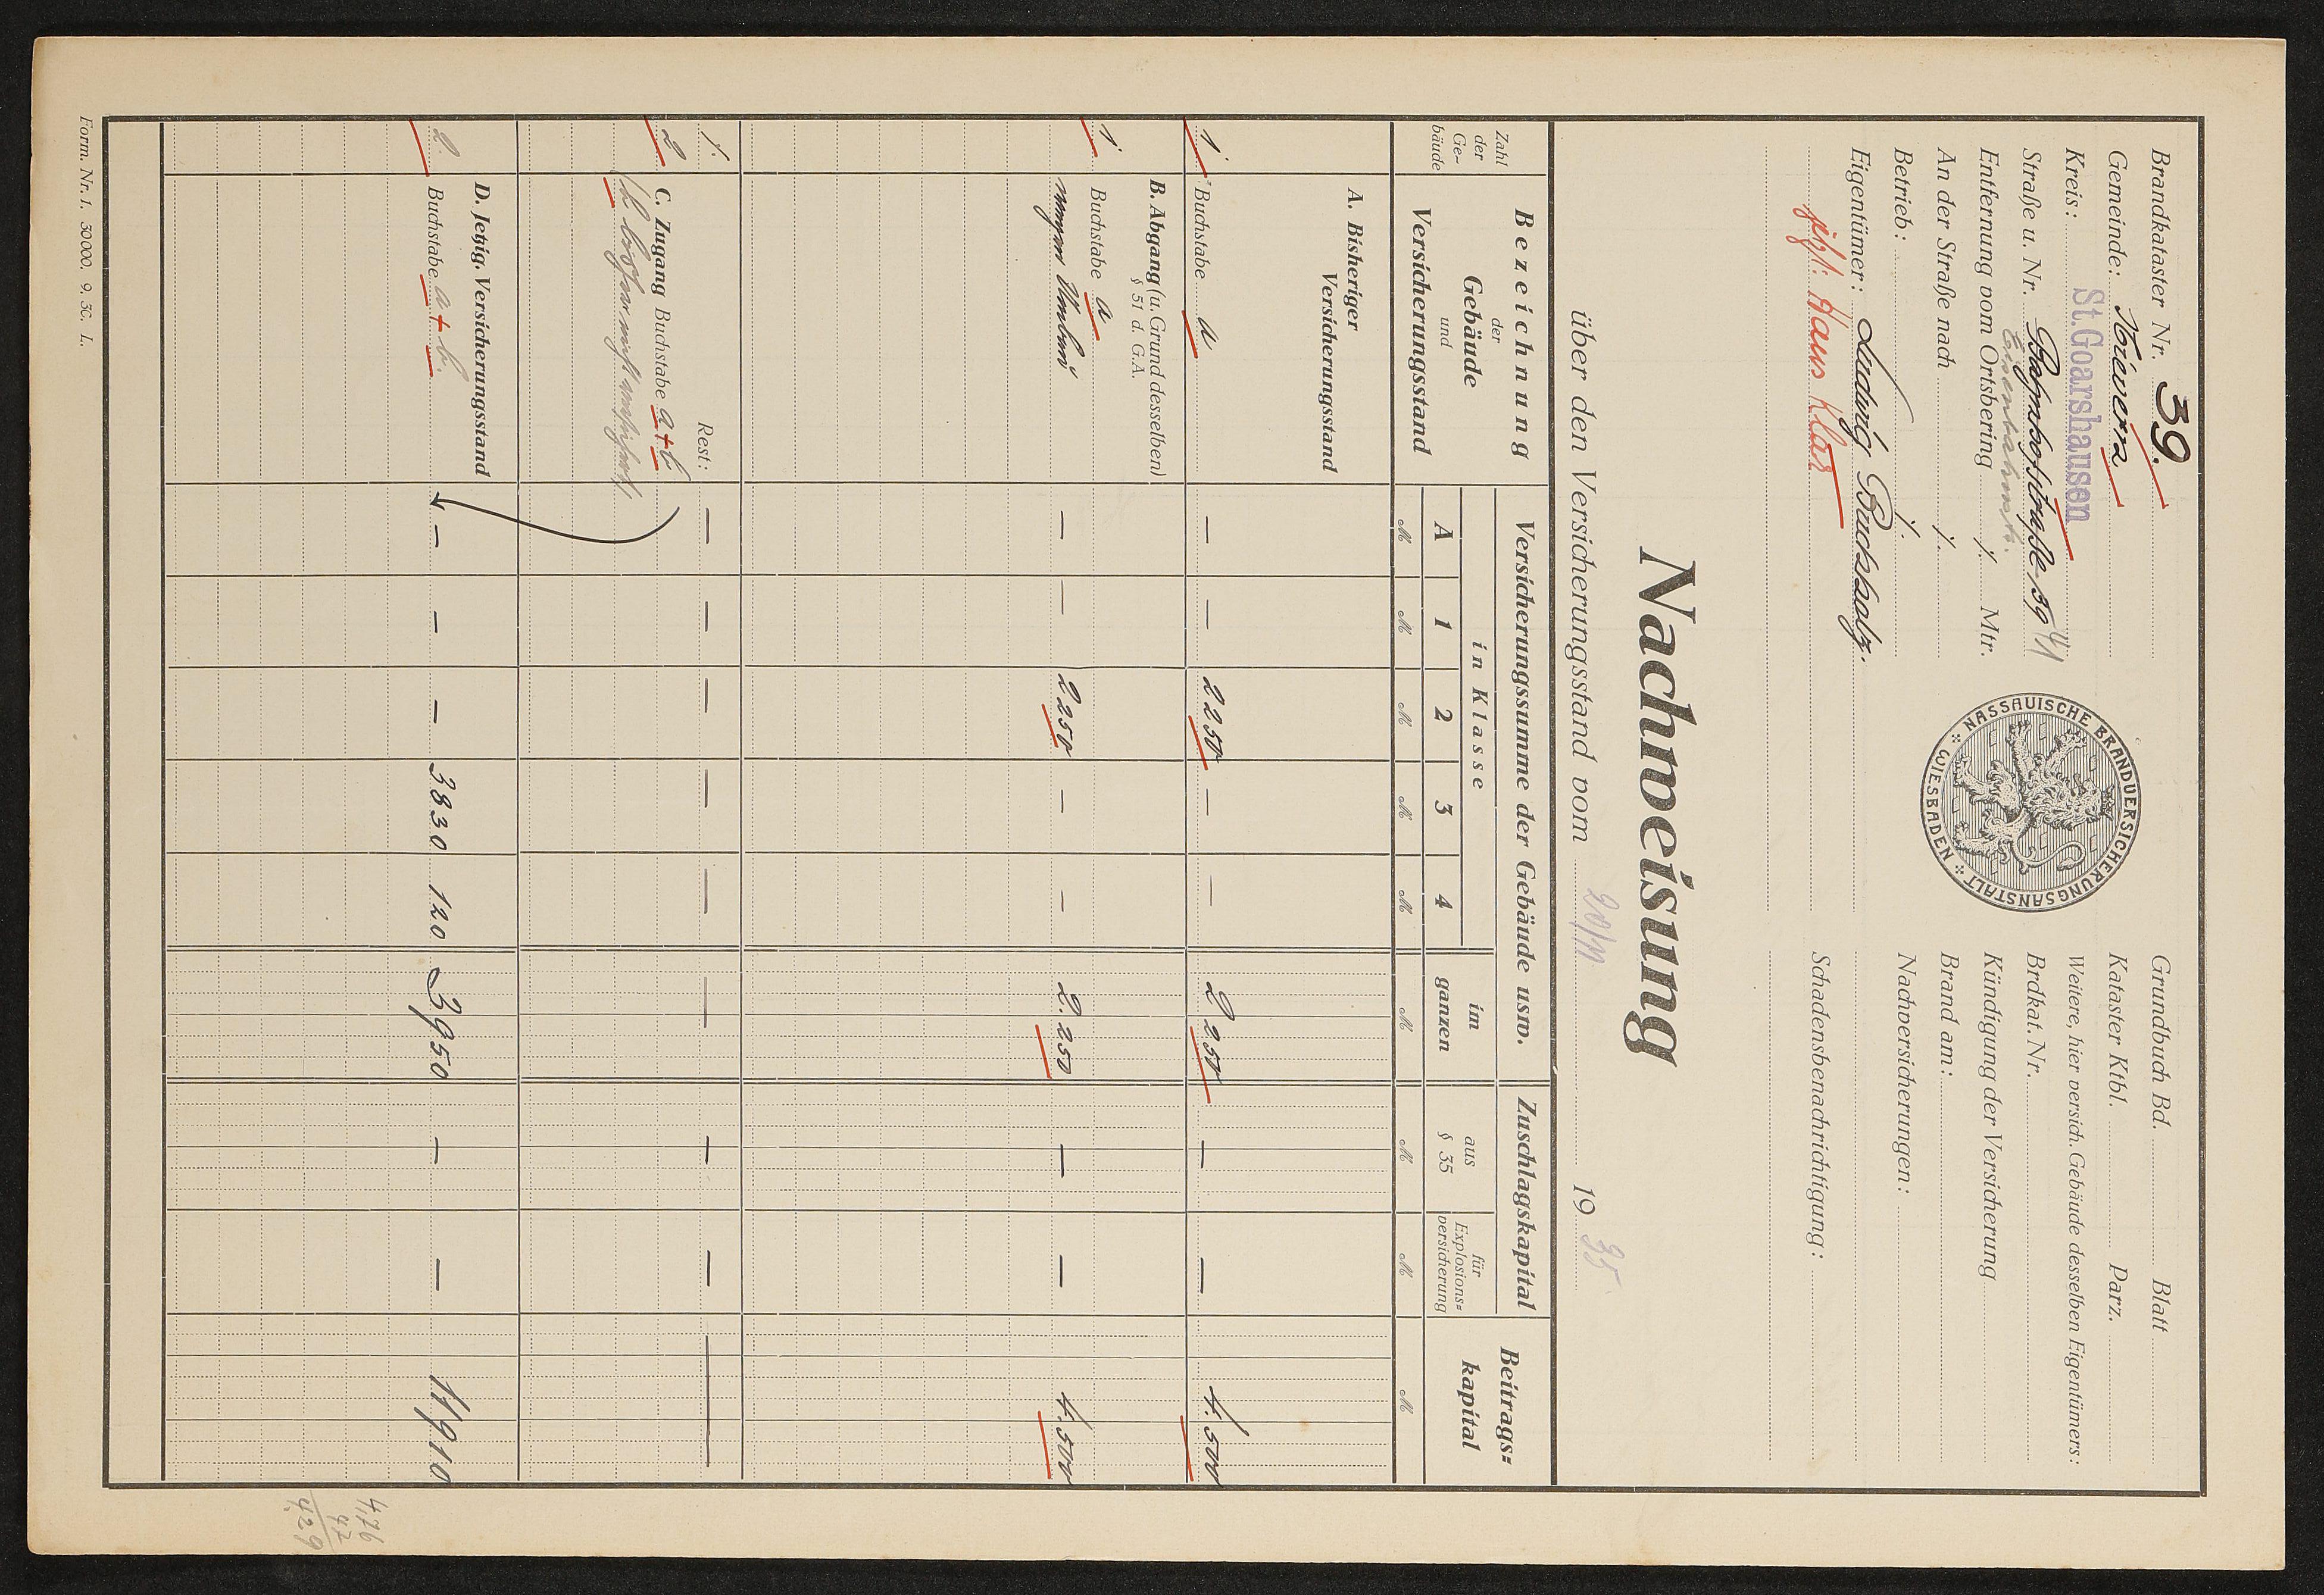 Brandkataster Nr. 39.
Gemeinde: Nievern
Kreis: St. Goarshausen
Straße u. Nr. Bahnhofstraße 39
Entfernung vom Ortsbering ./. Mtr.
An der Straße nach ./.
Betrieb: ./.
Eigentümer: Ludwig Buchholz.
jetzt: Hans Klar
NASSAUISCHE BRANDVERSICHERUNGSANSTALT
WIESBADEN
Grundbuch Bd. Blatt
Kataster Ktbl. Parz.
Weitere, hier versich. Gebäude desselben Eigentümers:
Brdkat. Nr.
Kündigung der Versicherung
Brand am:
Nachversicherungen:
Schadensbenachrichtigung:
Nachweisung
über den Versicherungsstand vom 20/11 1935
Zahl der Ge-bäude
Bezeichnung der Gebäude und Versicherungsstand
Versicherungssumme der Gebäude usw.
in Klasse
A 1 2 3 4
im ganzen
Zuschlagskapital
aus § 35
für Explosions-versicherung
Beitrags-kapital
M M M M M M M M M
A. Bisheriger Versicherungsstand
1. Buchstabe a — — 2250 — — 2250 — — 4.500
B. Abgang (u. Grund desselben)
§ 51 d. G.A.
1. Buchstabe a
wegen Umbau — — 2250 — — 2.250 — — 4.500
./. Rest: — — — — — — — — —
2 C. Zugang Buchstabe a + b
(b bisher nicht versichert)
D. Jetzig. Versicherungsstand
2. Buchstabe a + b. — — — 3830 120 3950 — — 11910
4,76
47
4.29
Form. Nr. 1. 30000. 9. 30. L.